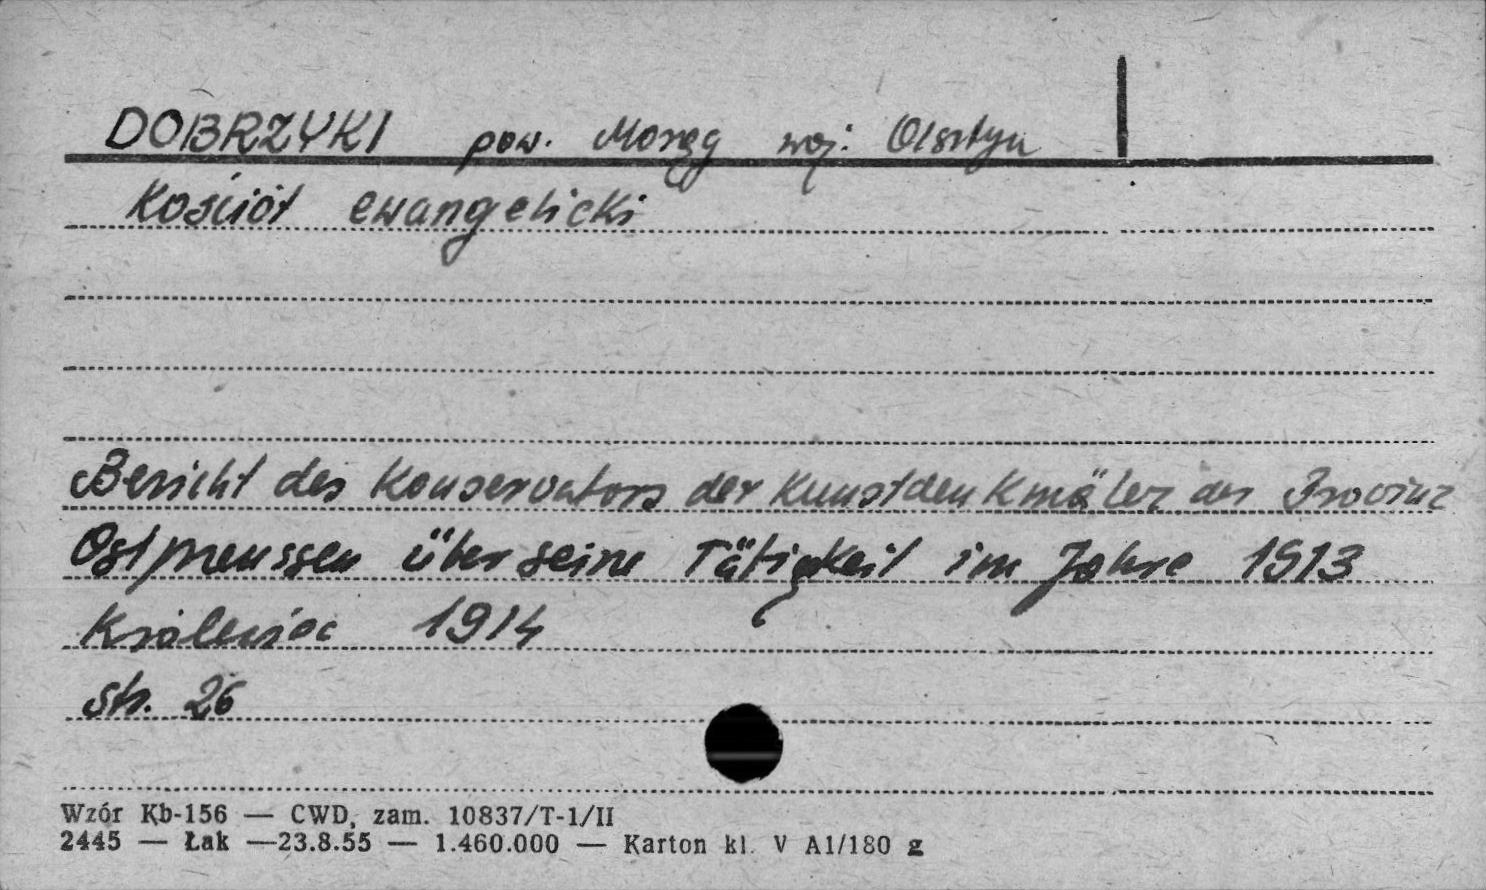 DOBRZYKI pow. Morąg woj. Olsztyn
Kościół ewangelicki
Bericht des Konservators der Kunstdenkmäler der Provinz
Ostpreussen über seine Tätigkeit im Jahre 1913
Królewiec 1914
str. 26
Wzór Kb-156 — CWD, zam. 10837/T-1/II
2445 — Łak —23.8.55 — 1.460.000 — Karton kl. V A1/180 g